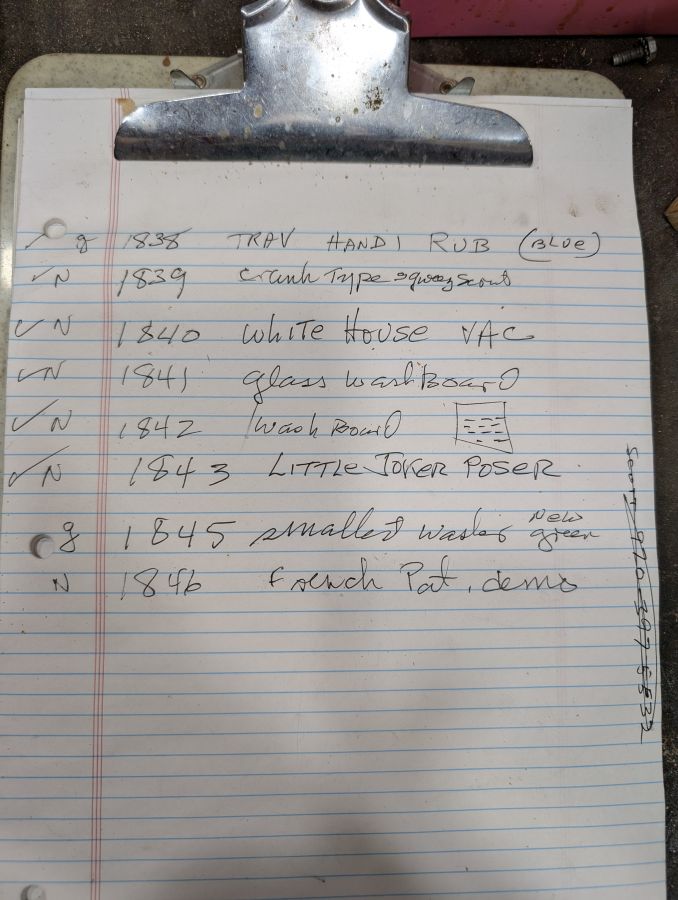 ✓ g 1838 TRAV HANDI RUB (BLUE)
✓ N 1839 Crank Type
✓ N 1840 WHITE HOUSE VAC
✓ N 1841 glass wash BOARD
✓ N 1842 wash BOARD
✓ N 1843 LITTLE JOKER POSER
g 1845 smallest washer New green
N 1846 French Pat. demo